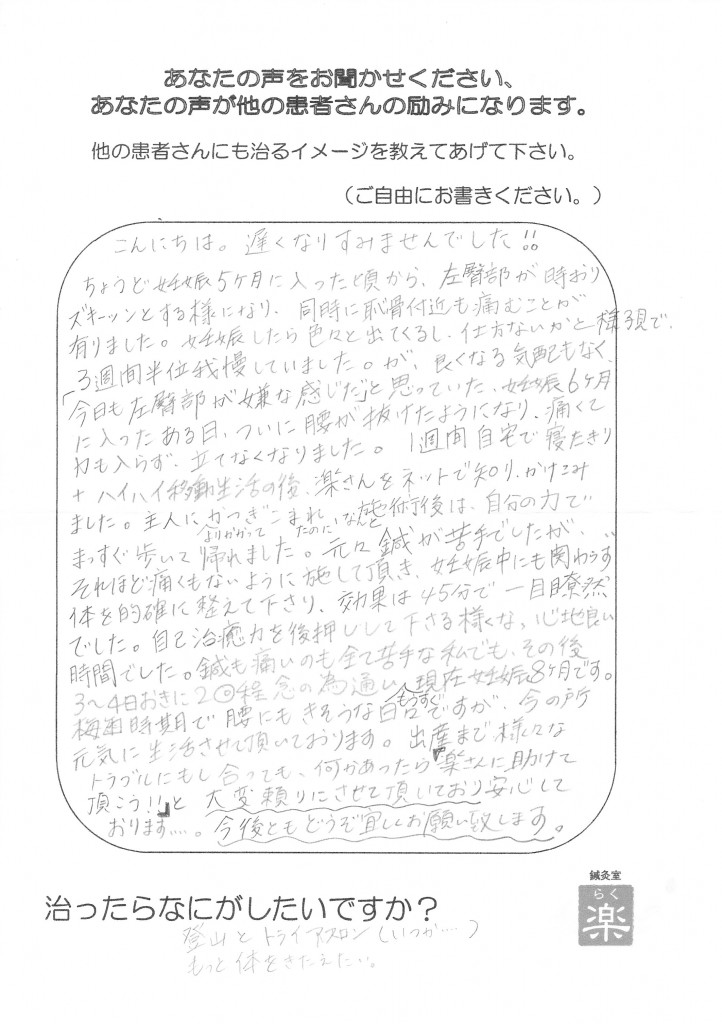 あなたの声をお聞かせください、
あなたの声が他の患者さんの励みになります。
他の患者さんにも治るイメージを教えてあげて下さい。
（ご自由にお書きください。）
こんにちは。遅くなりすみませんでした!!
ちょうど妊娠5ヶ月に入った頃から、左臀部が時おり
ズキーッンとする様になり、同時に恥骨付近も痛むことが
有りました。妊娠したら色々と出てくるし、仕方ないかと様子見で、
3週間半位我慢していました。が、良くなる気配もなく、
「今日も左臀部が嫌な感じだ」と思っていた、妊娠6ヶ月
に入ったある日、ついに腰が抜けたようになり、痛くて
力も入らず、立てなくなりました。1週間自宅で寝たきり
+ハイハイ移動生活の後、楽さんをネットで知り、かけこみ
ました。主人にかつぎこまれ、施術後は、自分の力で
よりかかって たのに、なんと
まっすぐ歩いて帰れました。元々鍼が苦手でしたが、
それほど痛くもないように施して頂き、妊娠中にも関わらず
体を的確に整えて下さり、効果は45分で一目瞭然
でした。自己治癒力を後押しして下さる様な、心地良い
時間でした。鍼も痛いのも全て苦手な私でも、その後
3〜4日おきに2回程念の為通い、現在妊娠8ヶ月です。
もうすぐ
梅雨時期で腰にもきそうな日々ですが、今の所
元気に生活させて頂いております。出産まで様々な
トラブルにもし合っても、何かあったら『楽さんに助けて
頂こう!!』と大変頼りにさせて頂いており安心して
おります....。今後ともどうぞ宜しくお願い致します。
治ったらなにがしたいですか？
登山とトライアスロン(いつか....)
もっと体をきたえたい。
鍼灸室
らく
楽